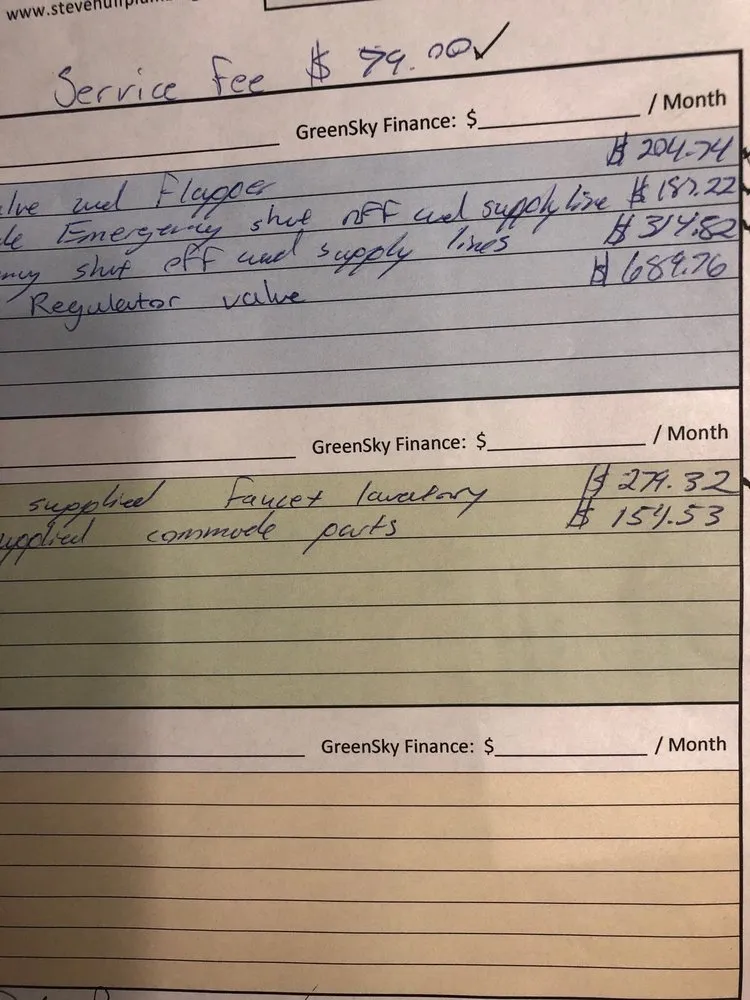 www.stevehuffplum
Service Fee $ 79.00 ✓
GreenSky Finance: $ / Month
lve and Flapper $ 204.74
Emergency shut off and supply line $ 187.22
shut off and supply lines $ 314.82
Regulator valve $ 689.76
GreenSky Finance: $ / Month
supplied Faucet lavatory $ 279.32
upplied commode parts $ 159.53
GreenSky Finance: $ / Month